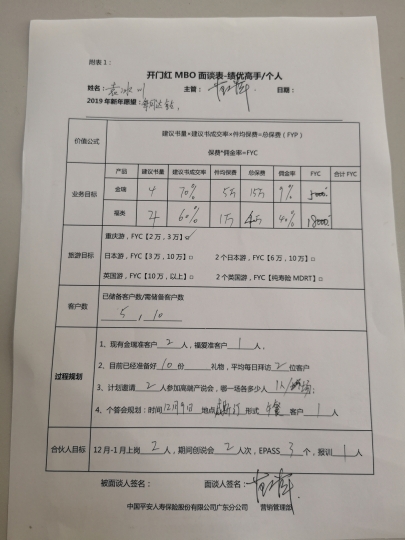 附表1：
开门红MBO面谈表-绩优高手/个人
姓名：袁冰川 主管： 日期：
2019年新年愿望：
价值公式
建议书量×建议书成交率×件均保费=总保费（FYP）
保费*佣金率=FYC
业务目标
产品 建议书量 建议书成交率 件均保费 总保费 佣金率 FYC 合计FYC
金瑞 4 70% 5万 15万 9%
福类 4 60% 1万 40% 18000
旅游目标
重庆游，FYC【2万，3万】
日本游，FYC【3万，10万】□ 2个日本游，FYC【6万，10万】□
英国游，FYC【10万，以上】□ 2个英国游，FYC【纯寿险MDRT】□
客户数
已储备客户数/需储备客户数
5，10
过程规划
1、现有金瑞准客户2人，福爱准客户1人，
2、目前已经准备好10份 礼物，平均每日拜访2位客户
3、计划邀请2人参加高端产说会，哪一场各多少人1人/
4、个答会规划：时间12月9日 地点 形式 午餐 客户1人
合伙人目标
12月-1月上岗2人，期间创说会2人次，EPASS 3个，报训1人
被面谈人签名： 面谈人签名：
中国平安人寿保险股份有限公司广东分公司 营销管理部